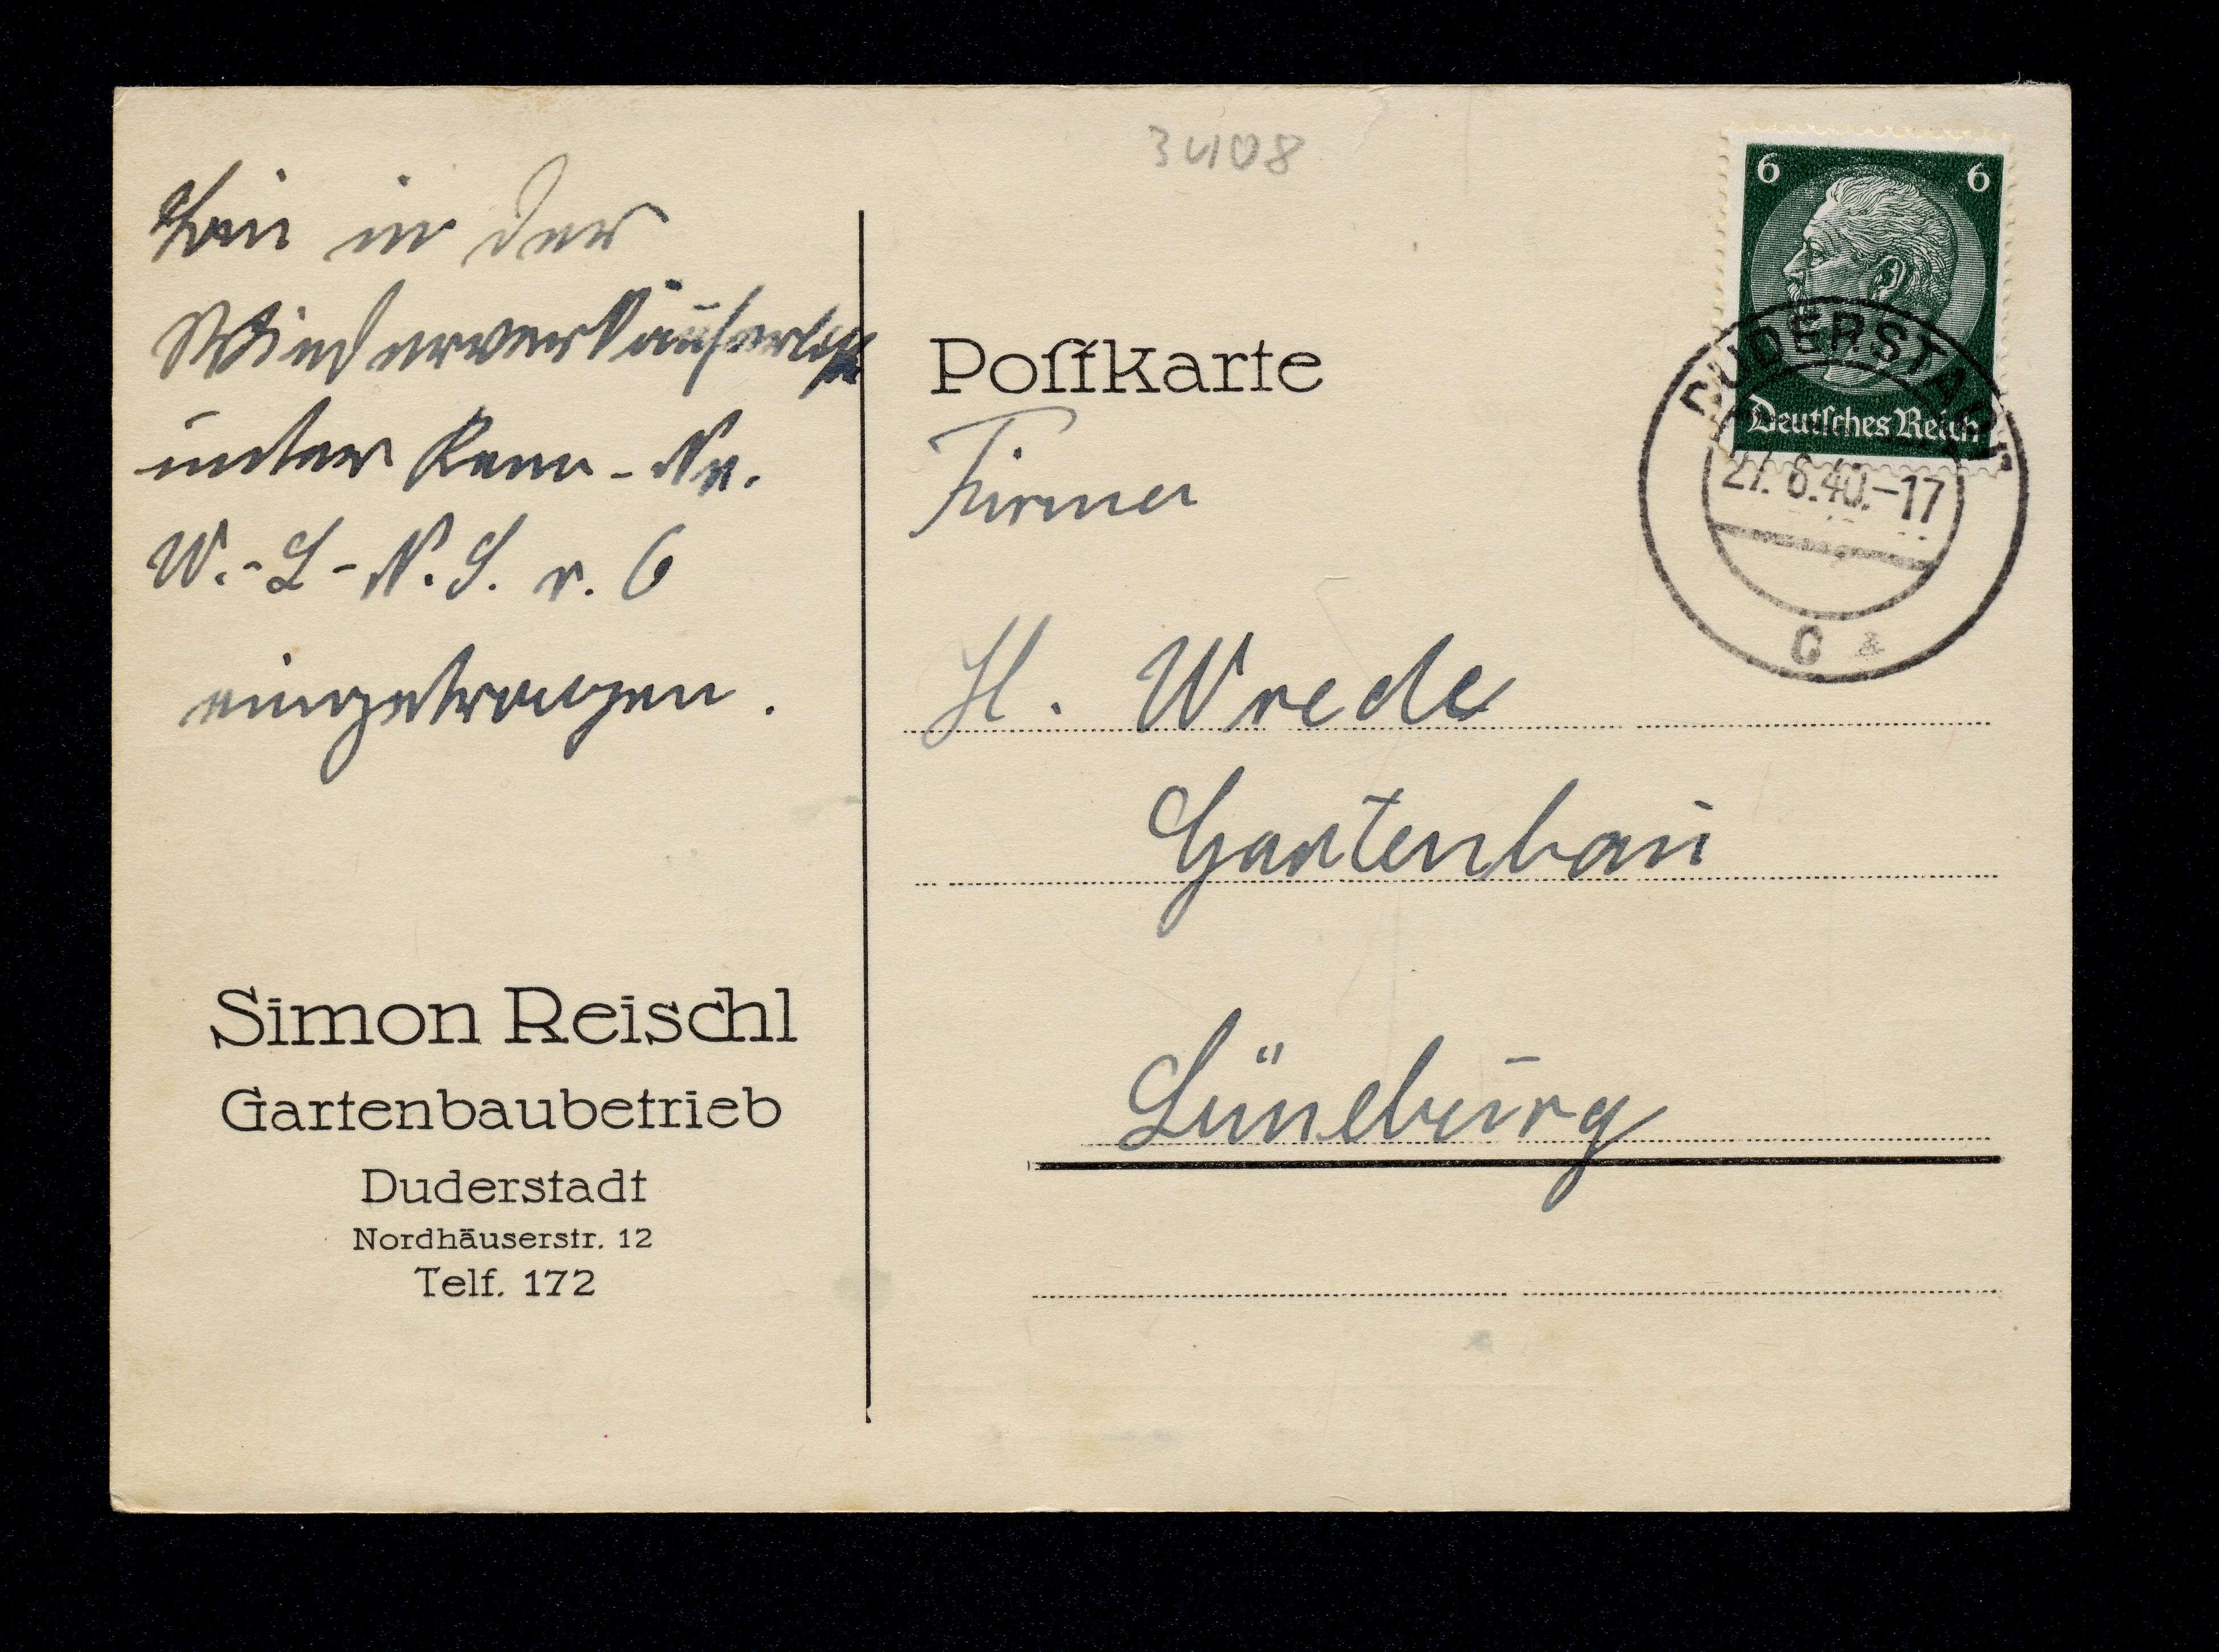 3408
Bin in der
Wiederverkäuferliste
unter Kenn-Nr.
W.-L-N.S. r. 6
eingetragen.
Simon Reischl
Gartenbaubetrieb
Duderstadt
Nordhäuserstr. 12
Telf. 172
Poſtkarte
Firma
H. Wrede
Gartenbau
Lüneburg
6 6
Deutſches Reich
DUDERSTADT
27.6.40.-17